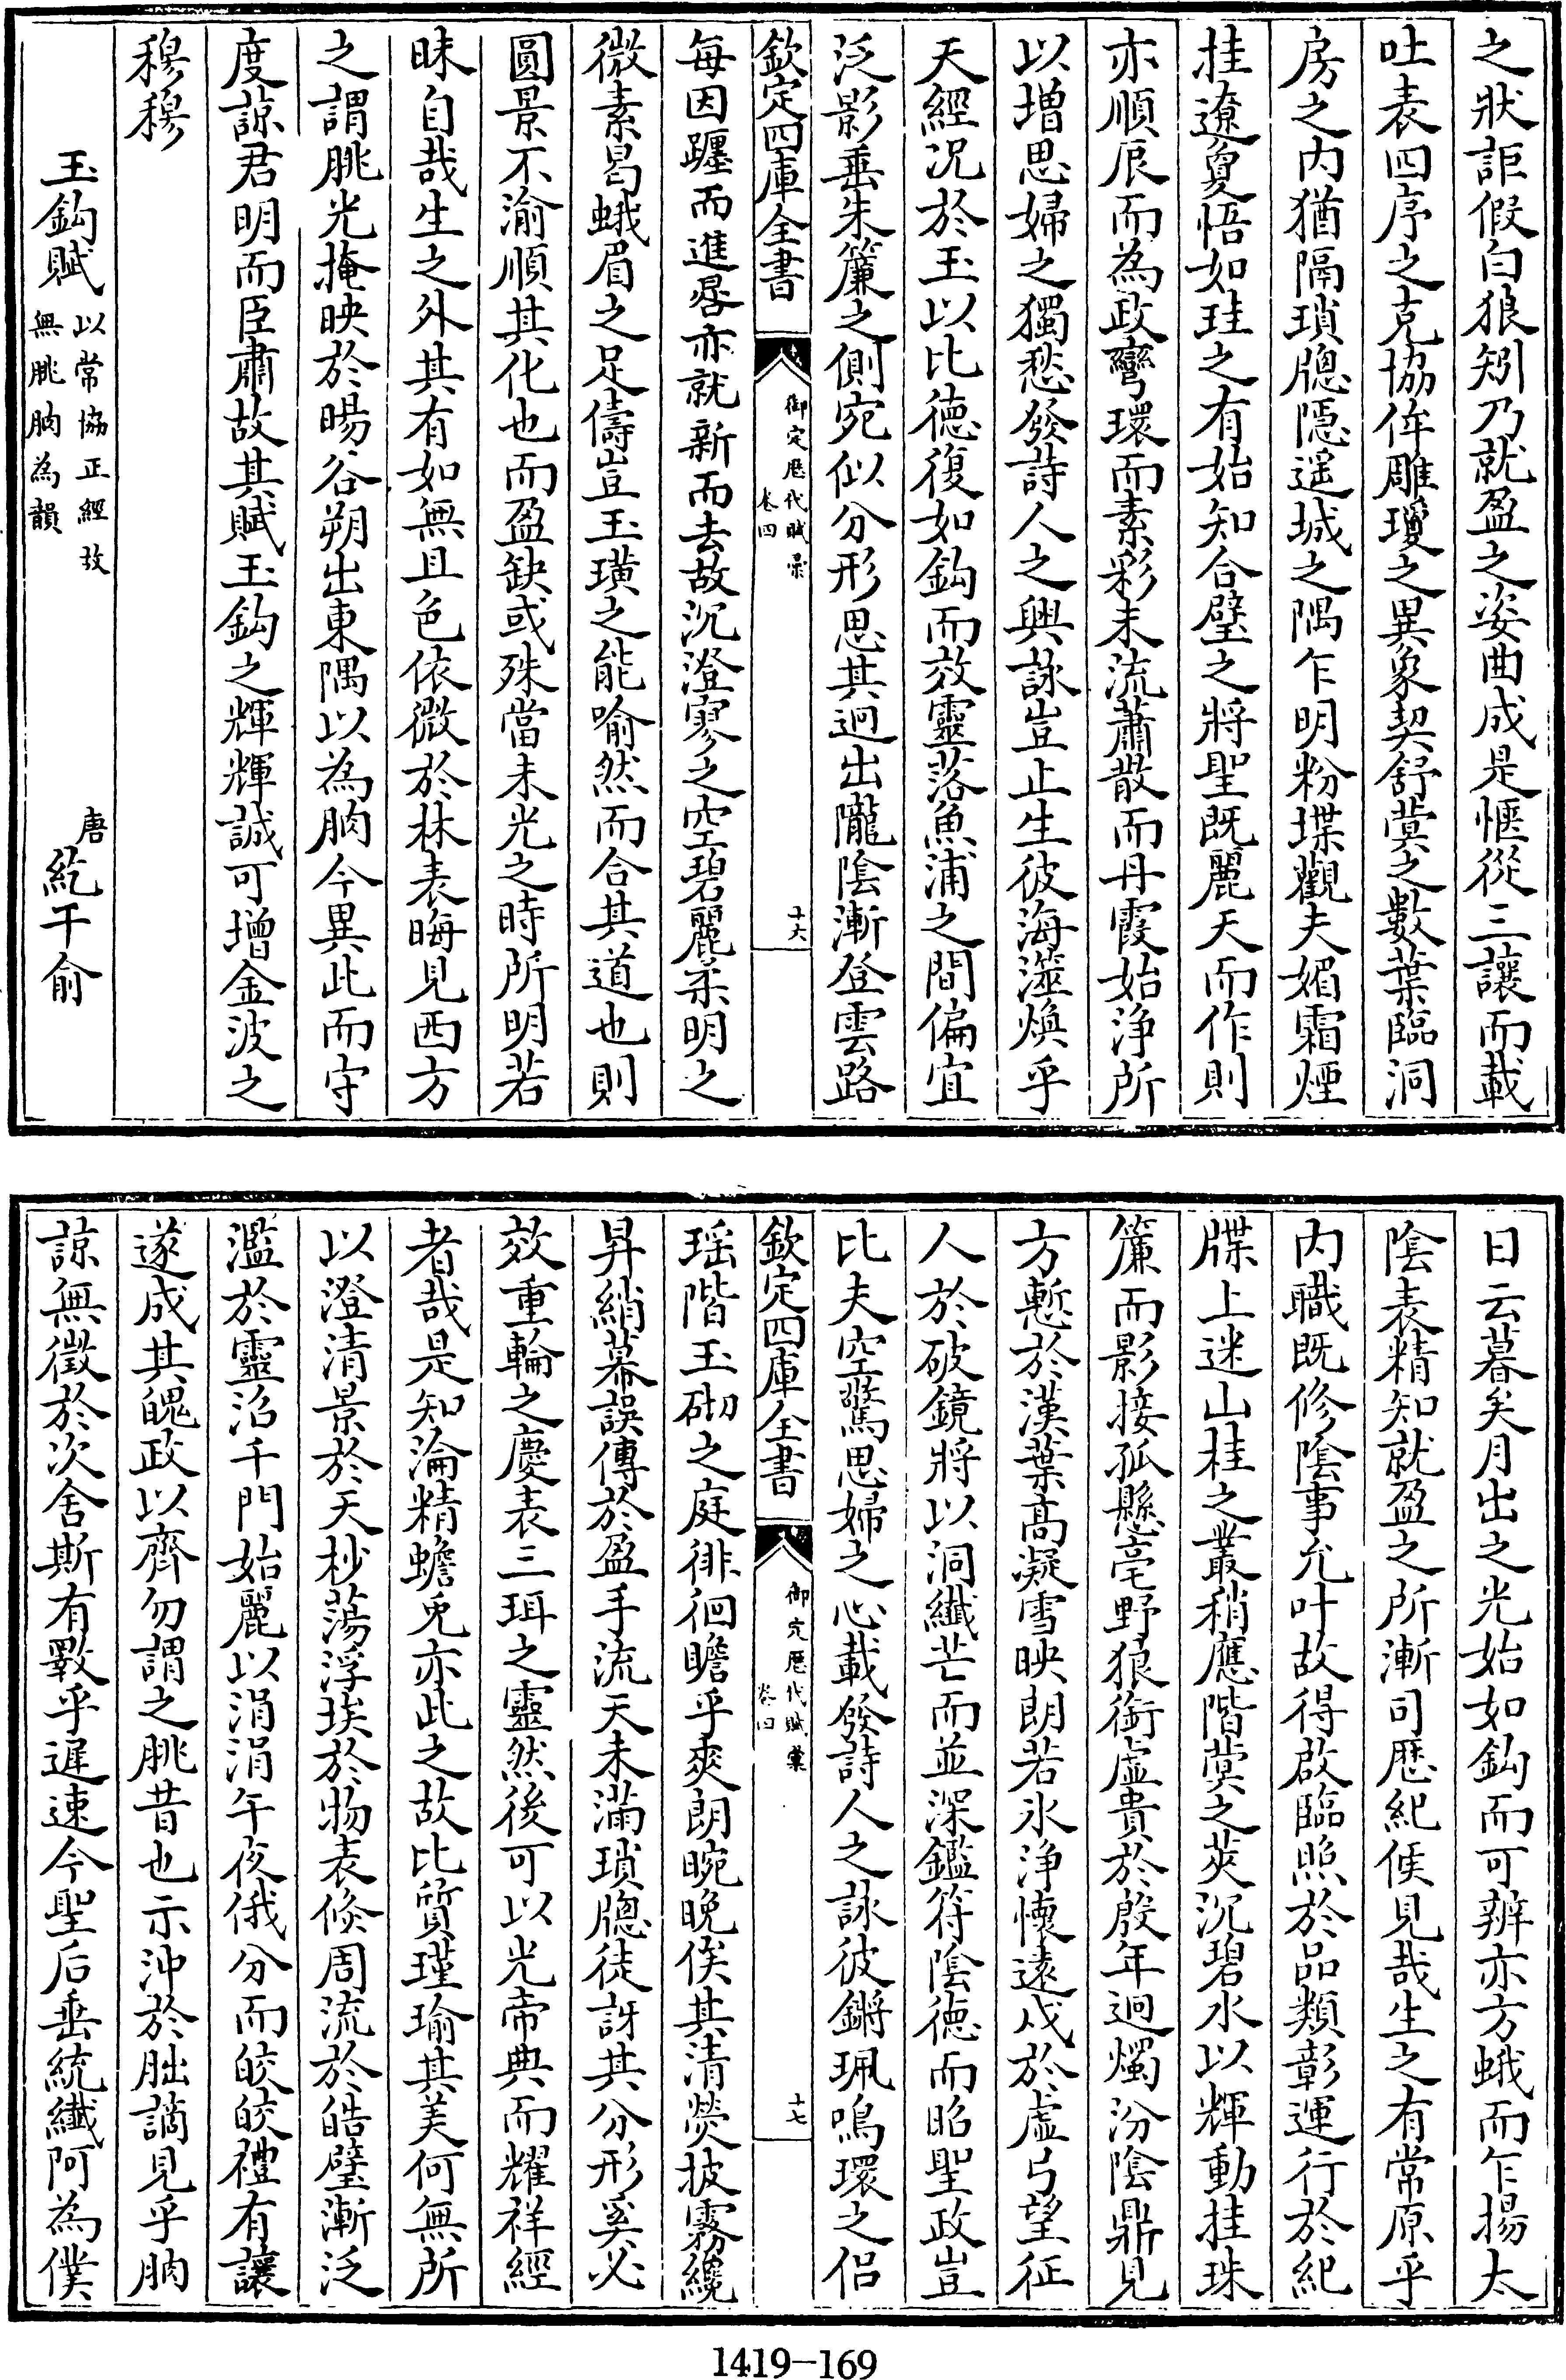 之狀詎假白狼矧乃就盈之姿曲成是愜從三讓而載
吐表四序之克協侔雕瓊之異象契舒蓂之數葉臨洞
房之内猶隔瑣牎隠遥城之隅乍明粉堞觀夫媚霜煙
挂遼夐悟如珪之有始知合璧之將聖既麗天而作則
亦順辰而為政彎環而素彩末流蕭散而丹霞始浄所
以增思婦之獨愁發詩人之興詠豈止生彼海澨煥乎
天經况於玉以比徳復如鈎而效靈落魚浦之間偏宜
泛影垂朱簾之側宛似分形思其迥出隴陰漸登雲路
欽定四庫全書
御定歴代賦彚
卷四
十六
每因躔而進晷亦就新而去故沉澄寥之空碧麗柔明之
微素曷蛾眉之足儔豈玉璜之能喻然而合其道也則
圓景不渝順其化也而盈缺或殊當未光之時所明若
昧自哉生之外其有如無且色依微於林表晦見西方
之謂朓光掩映於暘谷朔出東隅以為朒今異此而守
度諒君明而臣肅故其賦玉鈎之輝輝誠可增金波之
穆穆
玉鈎賦
以常協正經故
無朓朒為韻
唐
紇干俞
日云暮矣月出之光始如鈎而可辨亦方蛾而乍揚太
陰表精知就盈之所漸司歴紀候見哉生之有常原乎
内職既修陰事允叶故得啟臨照於品類彰運行於紀
牒上迷山桂之叢稍應階蓂之莢沉碧水以輝動挂珠
簾而影接孤懸亳野狼銜虛貴於殷年迥燭汾陰鼎見
方慙於漢葉高凝雪映朗若氷浄懐遠戍於虛弓望征
人於破鏡將以洞纎芒而並深鑑符陰徳而昭聖政豈
比夫空驚思婦之心載發詩人之詠彼鏘珮鳴環之侣
欽定四庫全書
御定歴代賦彚
卷四
十七
瑶階玉砌之庭徘徊瞻乎爽朗晼晚俟其清熒披霧纔
昇綃幕誤傳於盈手流天未滿瑣牎徒訝其分形奚必
效重輪之慶表三珥之靈然後可以光帝典而耀祥經
者哉是知淪精蟾兎亦此之故比質瑾瑜其美何無所
以澄清景於天杪蕩浮埃於物表倐周流於皓璧漸泛
濫於靈沼千門始麗以涓涓午夜俄分而皎皎禮有讓
遂成其魄政以齊勿謂之朓昔也示沖於朏謫見乎朒
諒無徵於次舍斯有斁乎遲速今聖后垂統纎阿為僕
1419—169